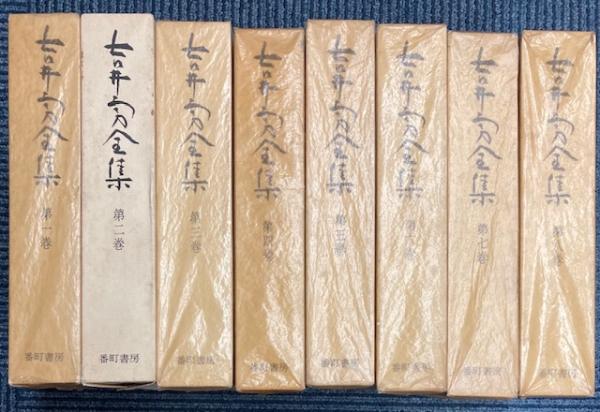 吉井勇全集
第一巻
番町書房
吉井勇全集
第二巻
番町書房
吉井勇全集
第三巻
番町書房
吉井勇全集
第四巻
番町書房
吉井勇全集
第五巻
番町書房
吉井勇全集
第六巻
番町書房
吉井勇全集
第七巻
番町書房
吉井勇全集
番町書房